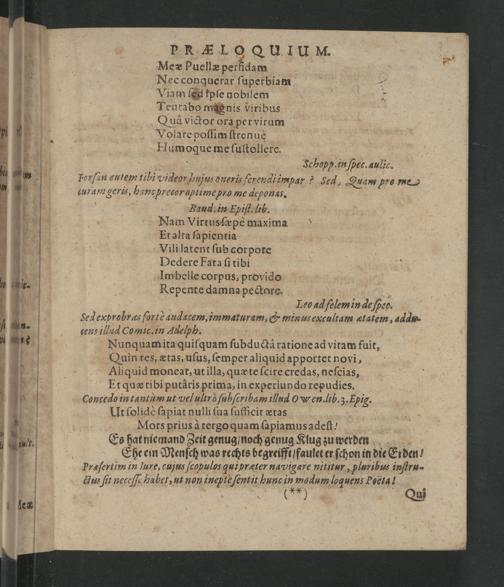 PRÆLOQUIUM.
Meæ Puellæ perfidam
Nec conquerar superbiam
Viam sed ipse nobilem
Tentabo magnis viribus
Quâ victor ora per virum
Volare possim strenuè
Humoque me sustollere.
Schopp. in spec. aulic.
Forsan autem tibi videor hujus oneris ferendi impar? Sed, Quam pro me
curam geris, hanc precor optime pro me deponas.
Baud. in Epist. lib.
Nam Virtus sæpè maxima
Et alta sapientia
Vili latent sub corpore
Dedere Fata si tibi
Imbelle corpus, provido
Repente damna pectore.
Leo ad felem in de spec.
Sed exprobras fortè audacem, immaturam, & minus excultam ætatem, addu-
cens illud Comic. in Adelph.
Nunquam ita quisquam subductâ ratione ad vitam fuit,
Quin res, ætas, usus, semper aliquid apportet novi,
Aliquid moneat, ut illa, quæ te scire credas, nescias,
Et quæ tibi putâris prima, in experiundo repudies.
Concedo in tantum ut vel ultrò subscribam illud Owen. lib. 3. Epig.
Ut solidè sapiat nulli sua sufficit ætas
Mors prius à tergo quam sapiamus adest!
Es hat niemand Zeit genug/noch genug Klug zu werden
Ehe ein Mensch was rechts begreifft/faulet er schon in die Erden!
Præsertim in Iure, cujus scopulos qui præter navigare nititur, pluribus instru-
ctus sit necesse habet, ut non ineptè sentit hunc in modum loquens Poëta!
(**)
Qui
Meæ